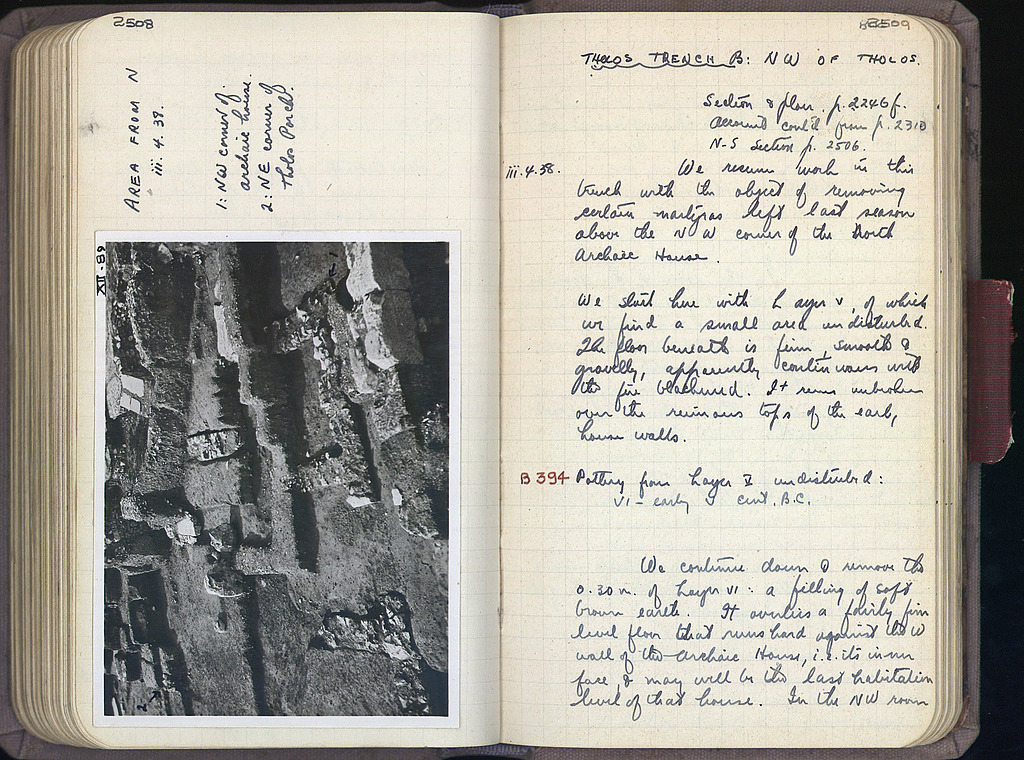 2508
AREA FROM N
iii. 4. 38.
1: NW corner of
archaic house.
2: NE corner of
Tholos Porch.
XII-89
1
2
2509
THOLOS TRENCH B: NW OF THOLOS.
Section & plan. p. 2246 f.
Account cont'd from p. 2310
N-S Section p. 2506.
iii.4.38. We resume work in this
trench with the object of removing
certain martyras left last season
above the NW corner of the North
Archaic House.
We start here with Layer V, of which
we find a small area undisturbed.
The floor beneath is firm, smooth &
gravelly, apparently continuous with
the fire blackened. It runs unbroken
over the ruinous tops of the early
house walls.
B 394 Pottery from Layer V undisturbed:
VI - early V cent. B.C.
We continue down & remove the
0.30 m. of Layer VI: a filling of soft
brown earth. It overlies a fairly firm
level floor that runs hard against the W
wall of the Archaic House, i.e. its inner
face & may well be the last habitation
level of that house. In the NW room